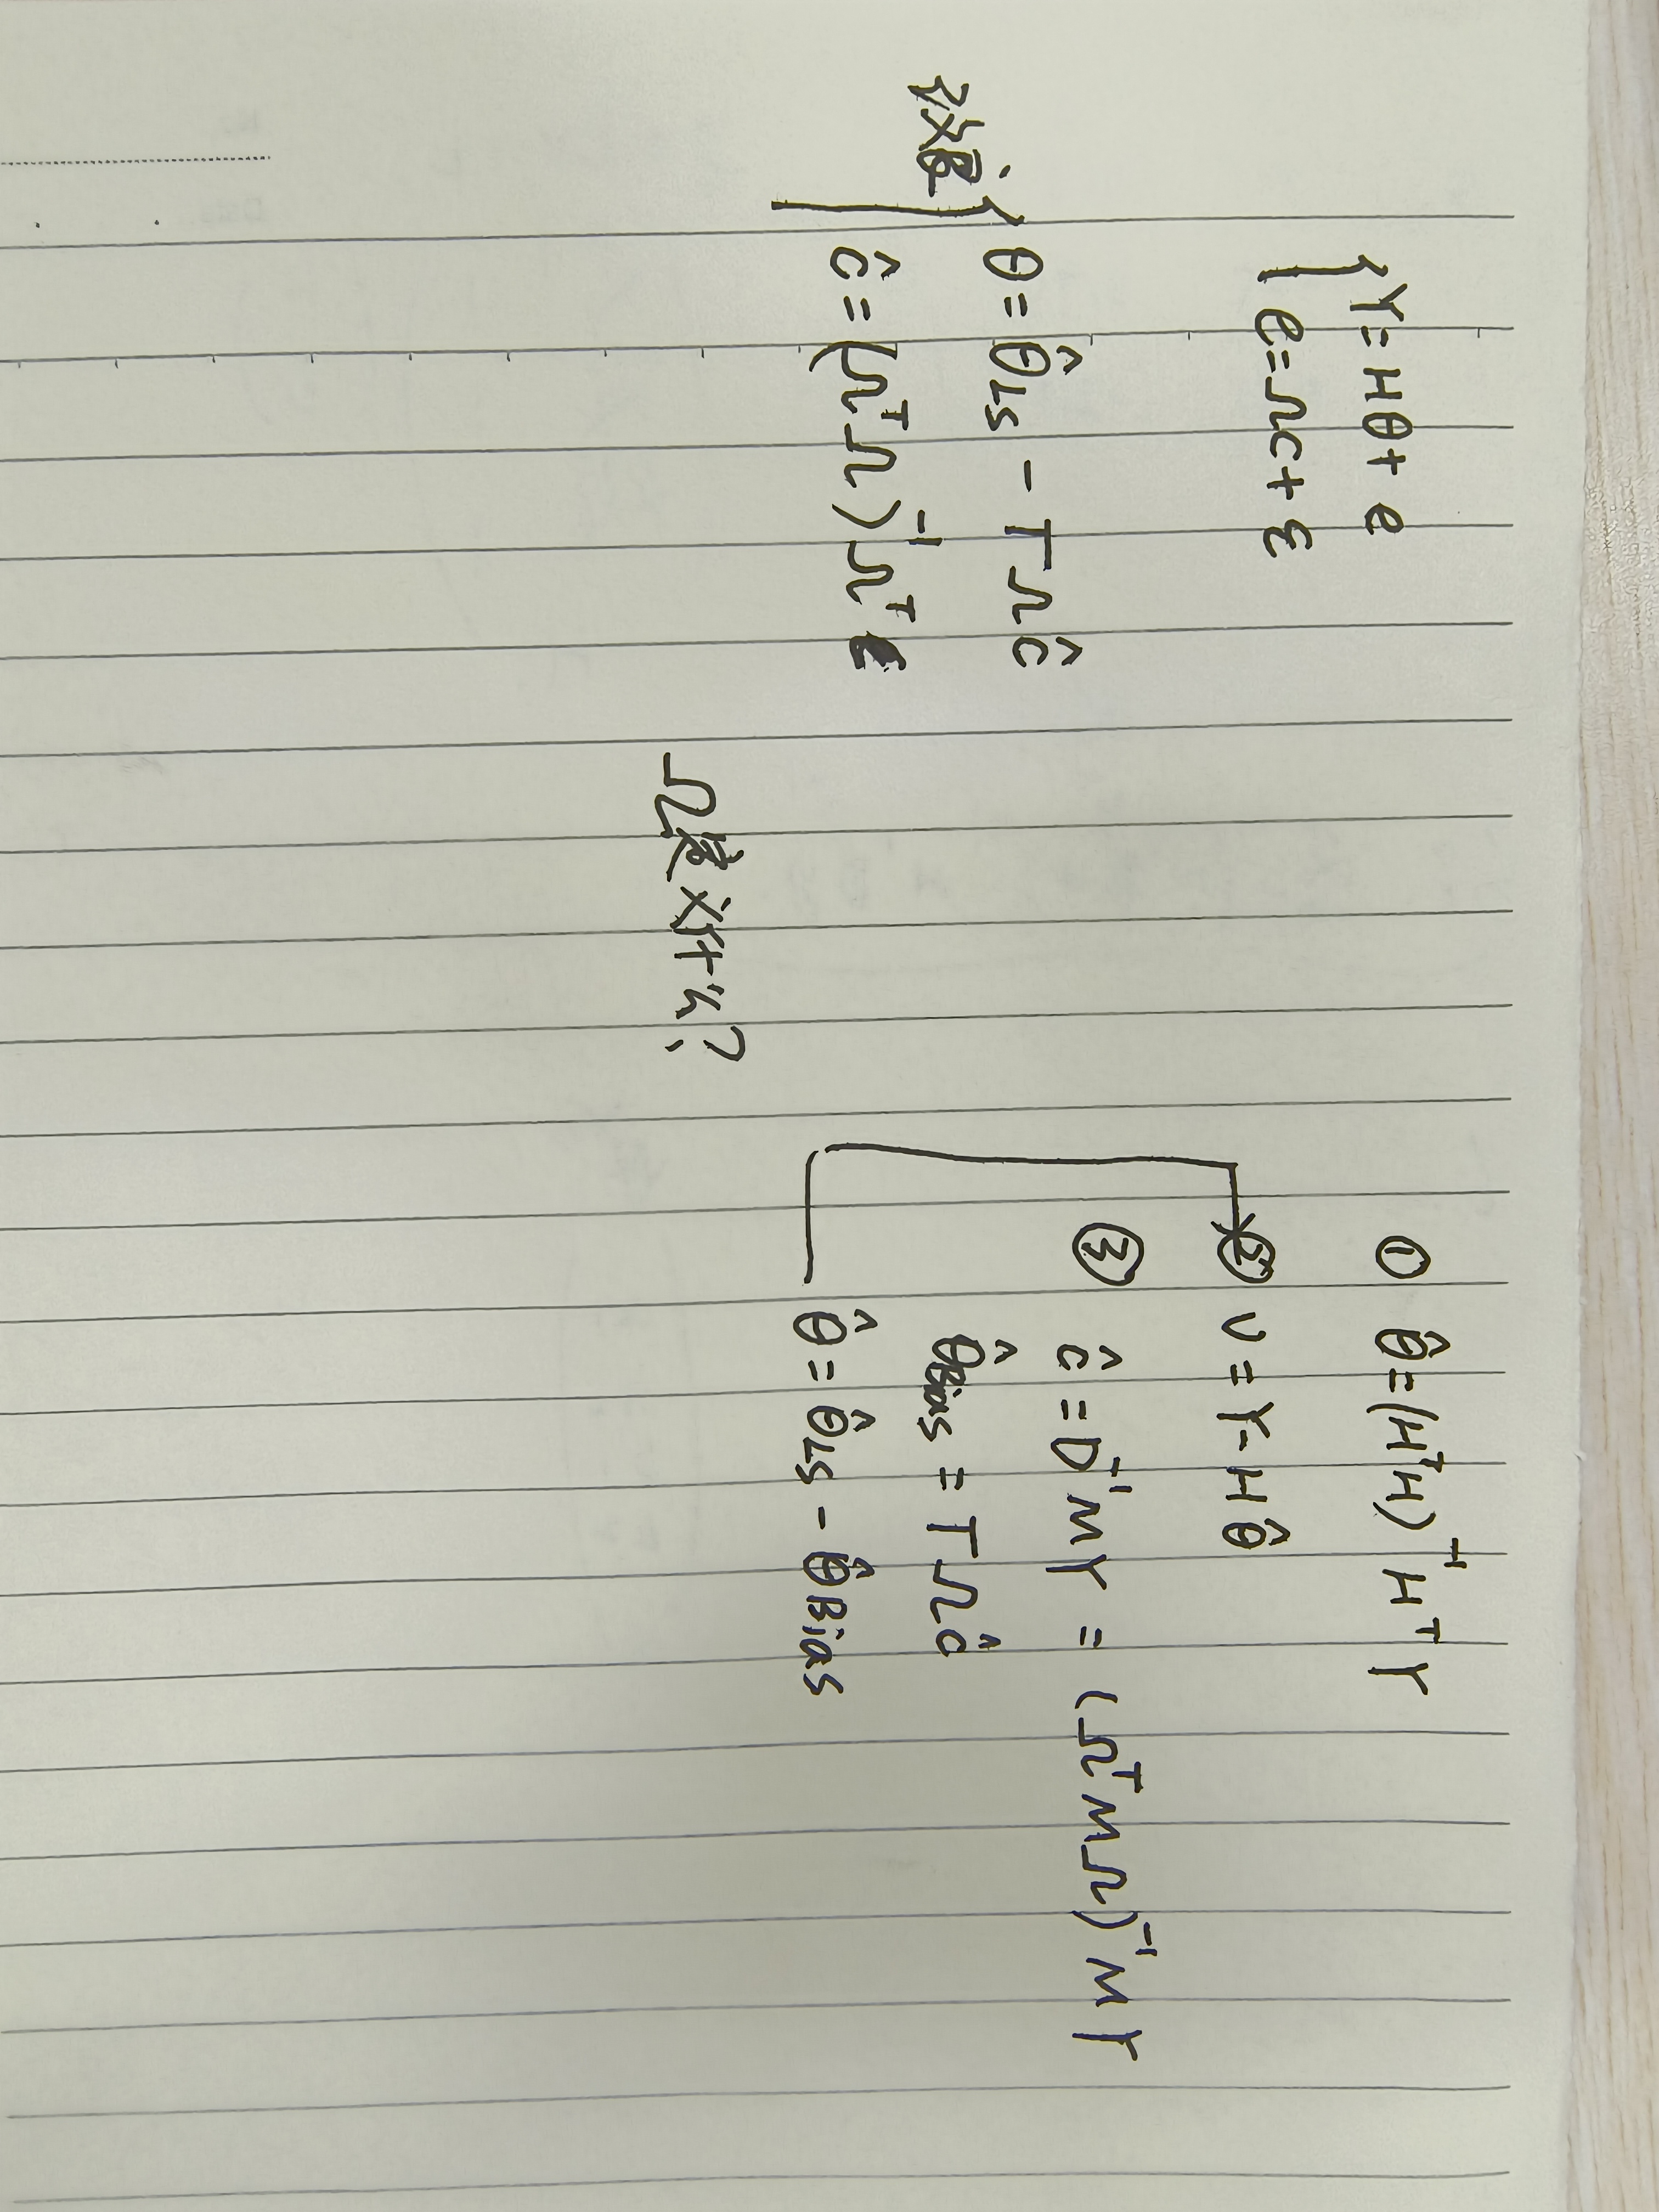 Y = Hθ + e
e = Ωc + ε
θ = θ̂LS − TΩĉ
ĉ = (ΩᵀΩ)⁻¹Ωᵀ
Ω是对什么?
① θ̂ = (HᵀH)⁻¹HᵀY
② v = Y − Hθ̂
③ ĉ = D⁻¹MY = (ΩᵀMΩ)⁻¹MY
θ̂Bias = TΩĉ
θ̂ = θ̂LS − θ̂Bias